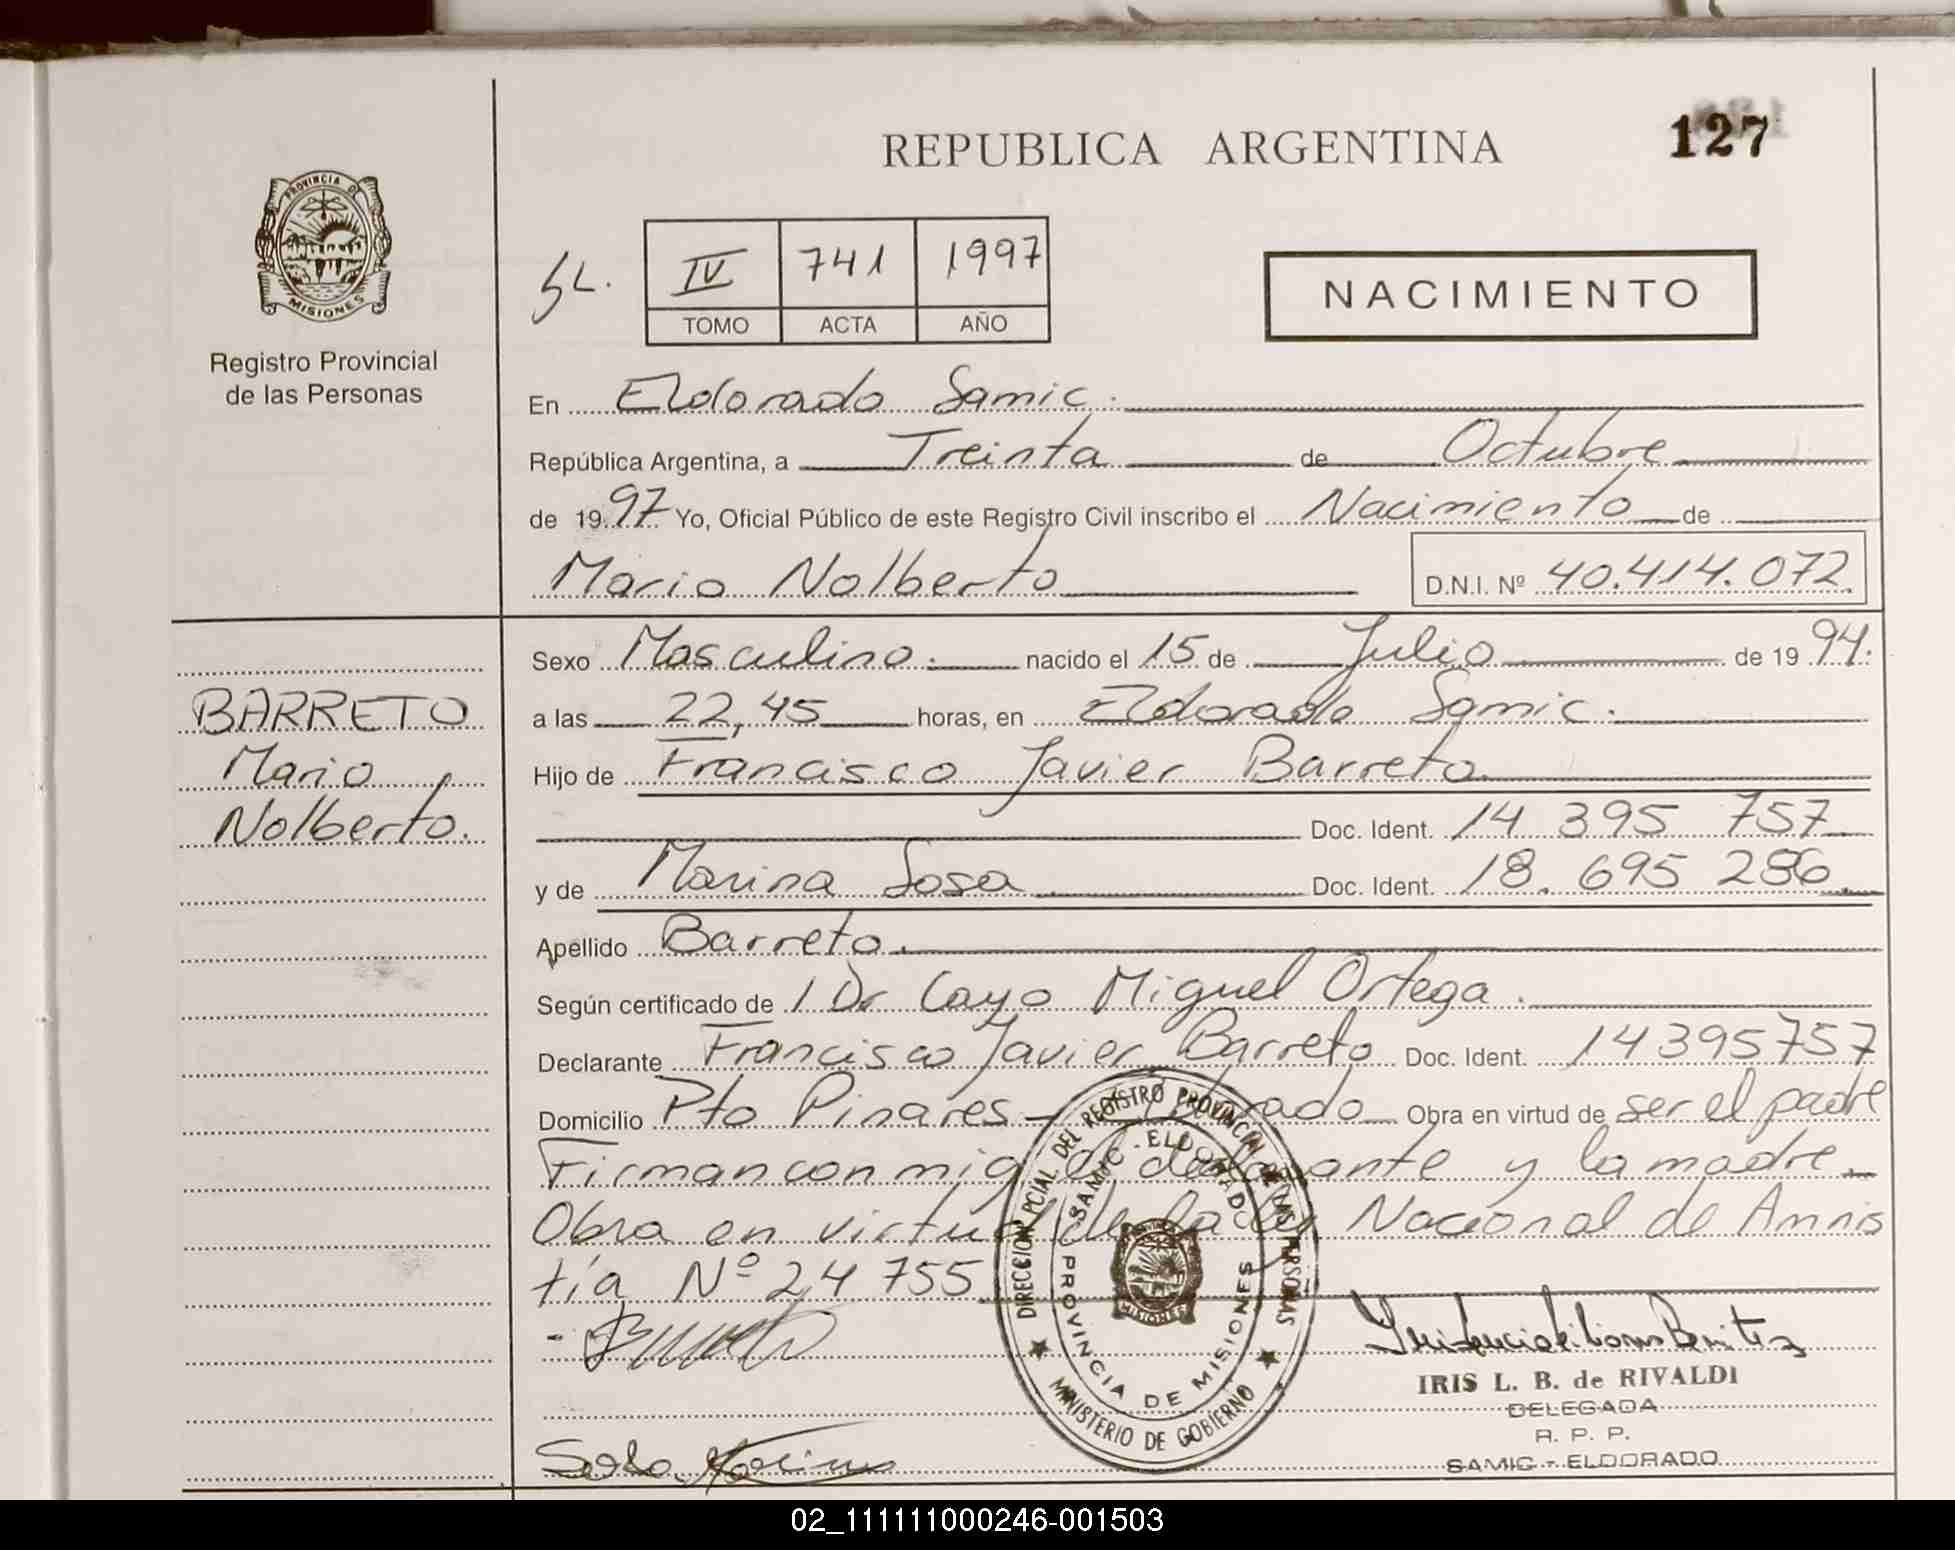 REPUBLICA ARGENTINA
127
PROVINCIA DE
MISIONES
Registro Provincial
de las Personas
IV 741 1997
TOMO ACTA AÑO
NACIMIENTO
En Eldorado Samic.
República Argentina, a Treinta de Octubre
de 1997 Yo, Oficial Público de este Registro Civil inscribo el Nacimiento de
Mario Nolberto D.N.I. Nº 40.414.072
BARRETO
Mario
Nolberto.
Sexo Masculino. nacido el 15 de Julio de 1994.
a las 22,45 horas, en Eldorado Samic.
Hijo de Francisco Javier Barreto
Doc. Ident. 14 395 757
y de Marina Sosa Doc. Ident. 18. 695 286
Apellido Barreto.
Según certificado de 1 Dr Cayo Miguel Ortega.
Declarante Francisco Javier Barreto Doc. Ident. 14395757
Domicilio Pto Pinares - Eldorado Obra en virtud de ser el padre
Firman conmigo el declarante y la madre
Obra en virtud de la Ley Nacional de Amnis
tía Nº 24 755
DIRECCION PCIAL DEL REGISTRO PROVINCIAL DE LAS PERSONAS
SAMIC - ELDORADO
PROVINCIA DE MISIONES
MINISTERIO DE GOBIERNO
MISIONES
IRIS L. B. de RIVALDI
DELEGADA
R. P. P.
SAMIC - ELDORADO
02_111111000246-001503